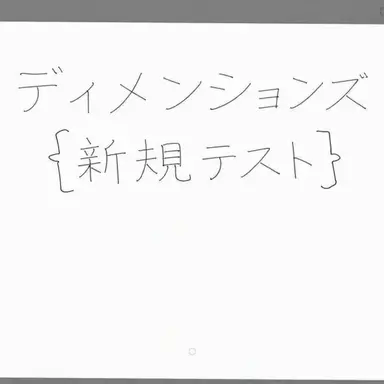 ディメンションズ
{新規テスト}